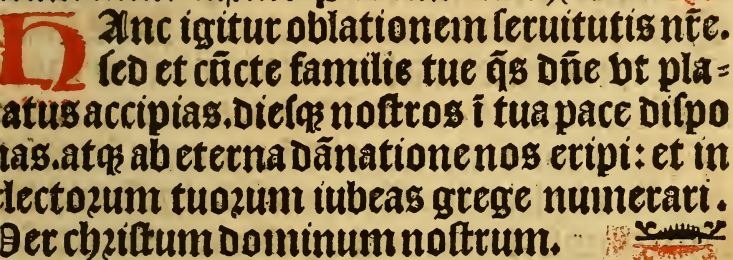 HAnc igitur oblationem ſeruitutis nr̄e.
ſed et cūcte familie tue q̄s dn̄e vt pla⸗
atus accipias. dieſqꝫ noſtros ī tua pace diſpo
nas. atqꝫ ab eterna dānatione nos eripi: et in
electoꝝum tuoꝛum iubeas grege numerari.
Per chꝛiſtum dominum noſtrum.